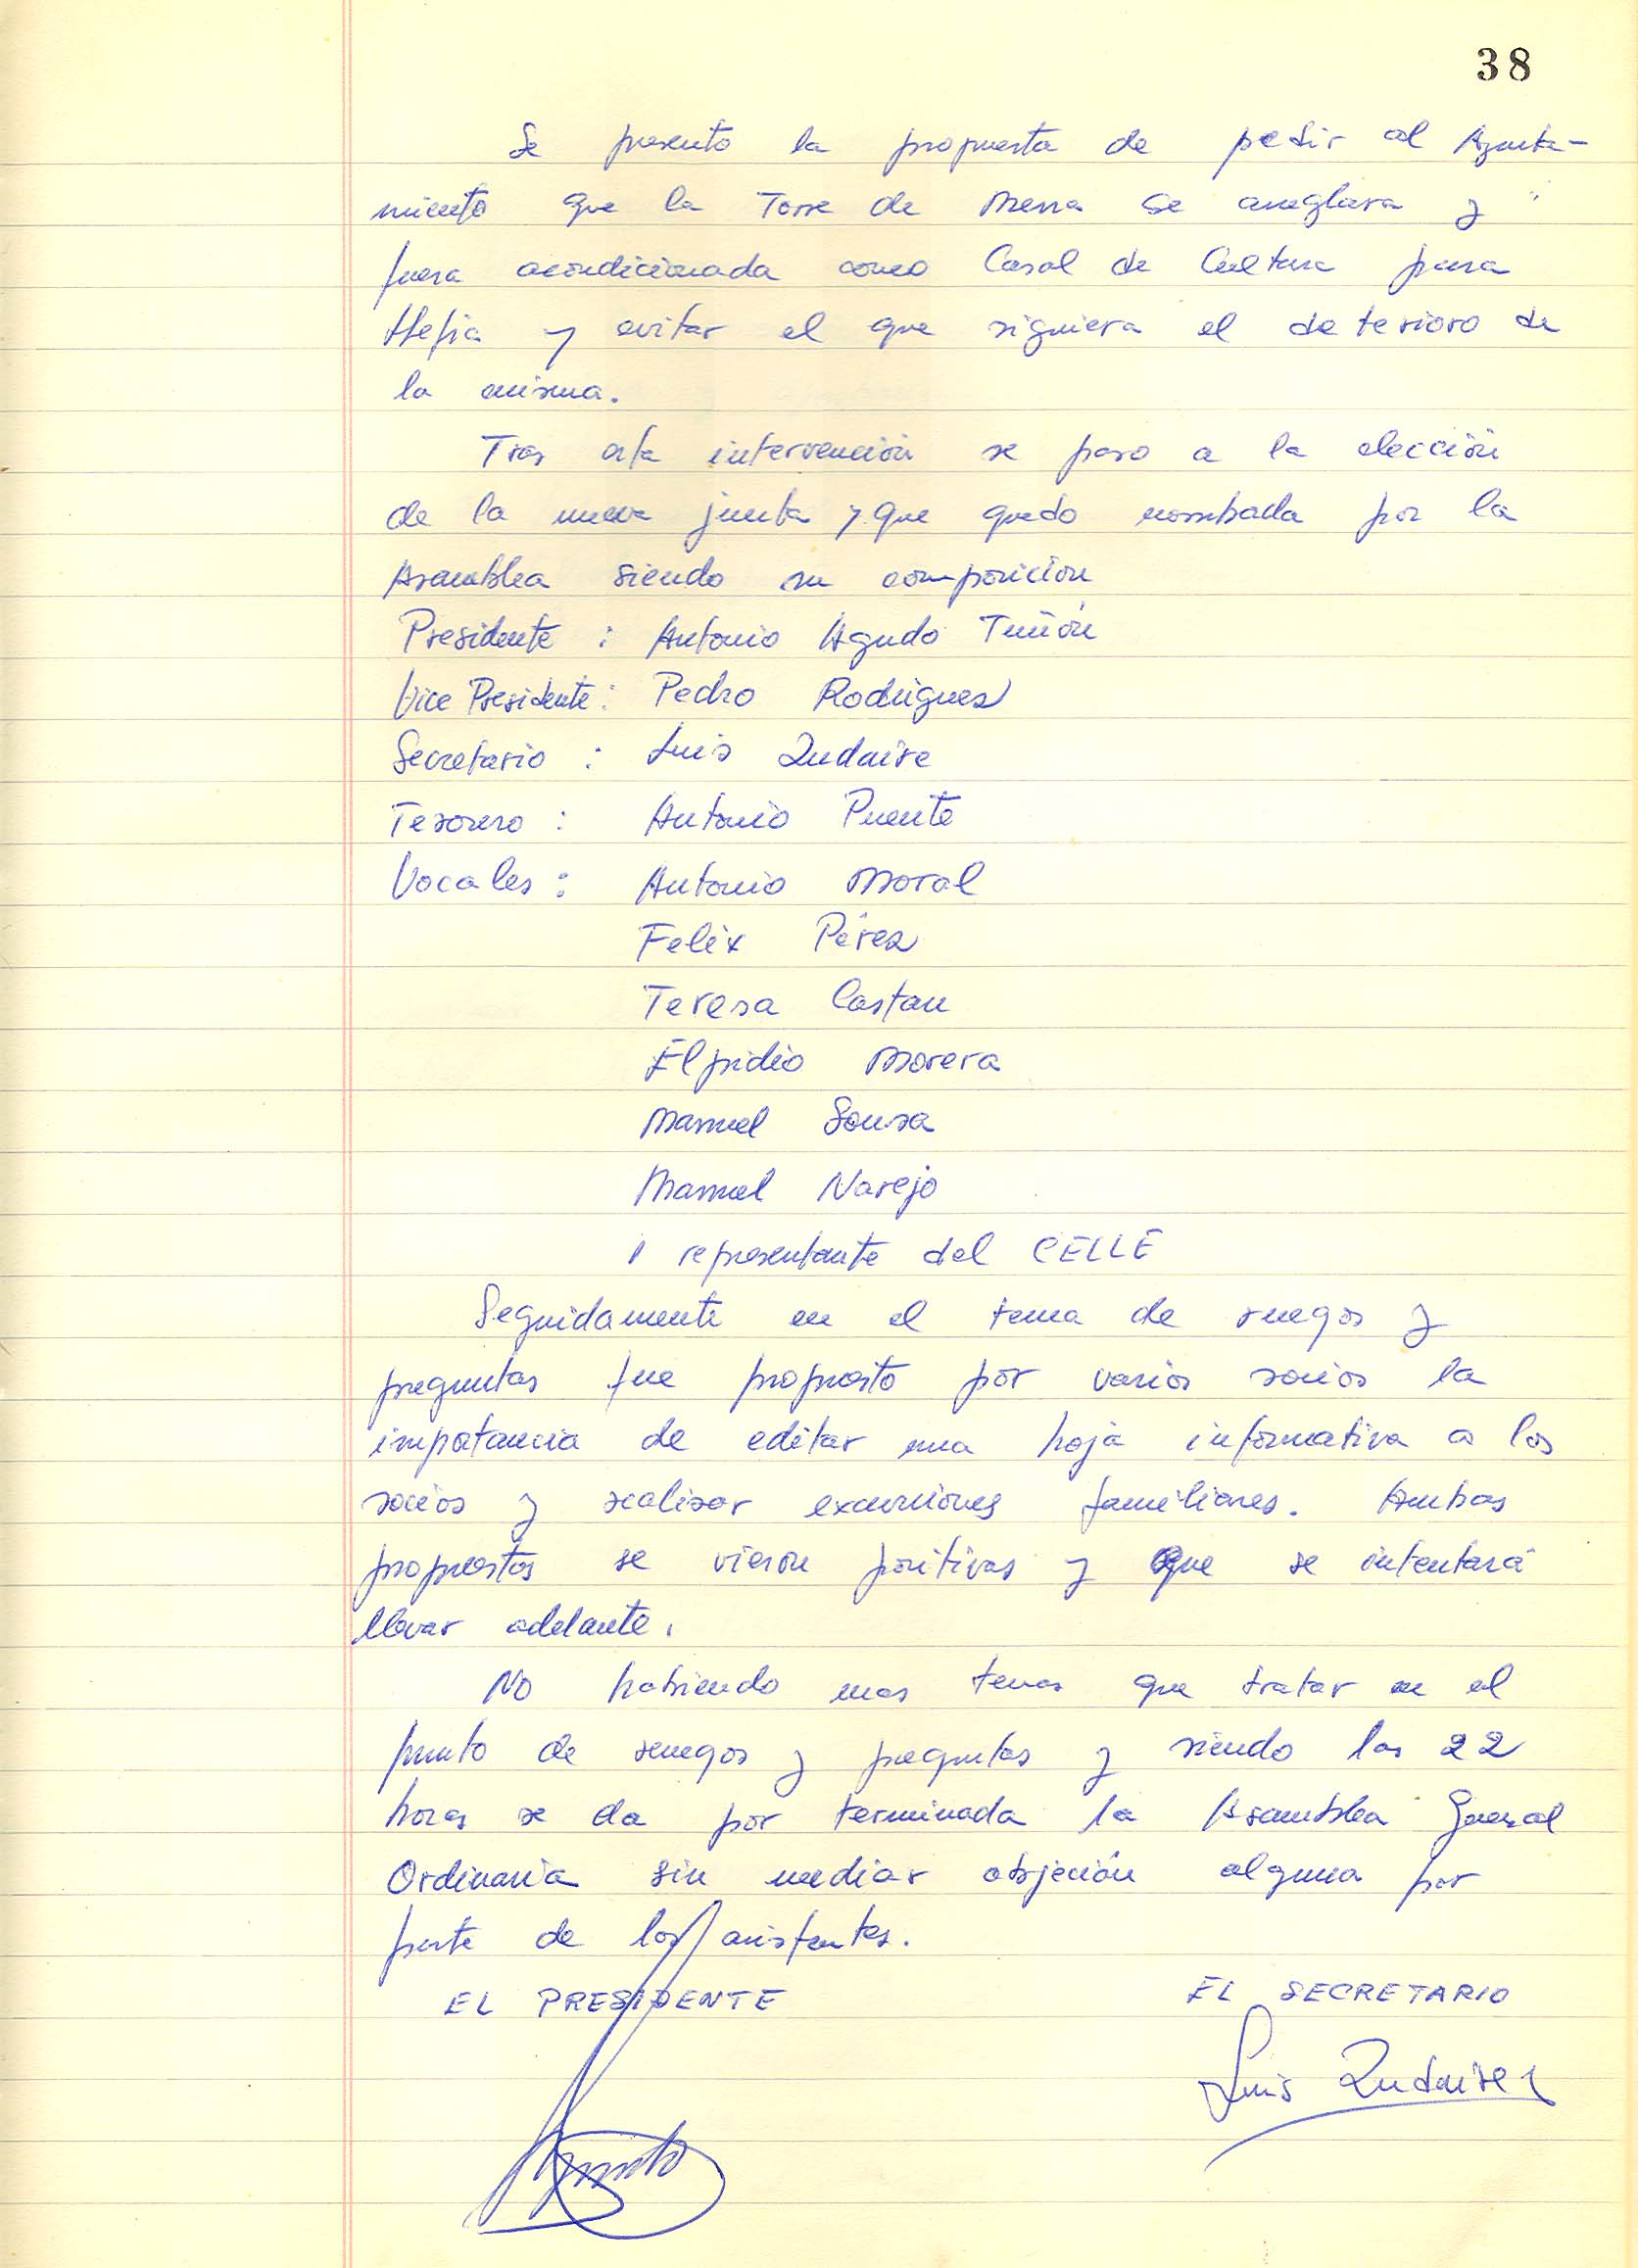 38
Se presento la propuesta de pedir al Ayunta-
miento que la Torre de Mena se arreglara y
fuera acondicionada como Casal de Cultura para
Llefia y evitar el que siguiera el deterioro de
la misma.
Tras esta intervención se paso a la elección
de la nueva junta y que quedo nombada por la
Asamblea siendo su composicion
Presidente : Antonio Agudo Tuñón
Vice Presidente : Pedro Rodrigues
Secretario : Luis Zudaire
Tesorero : Antonio Puente
Vocales : Antonio Moral
Felix Pérez
Teresa Castan
Elpidio Morera
Manuel Sousa
Manuel Narejo
1 representante del CELLE
Seguidamente en el tema de ruegos y
preguntas fue propuesto por varios socios la
impotancia de editar una hoja informativa a los
socios y realizar excursiones familiares. Ambas
propuestas se vieron positivas y que se intentará
llevar adelante.
No habiendo mas temas que tratar en el
punto de ruegos y preguntas y siendo las 22
horas se da por terminada la Asamblea General
Ordinaria sin mediar objeción alguna por
parte de los asistentes.
EL PRESIDENTE EL SECRETARIO
Luis Zudaire